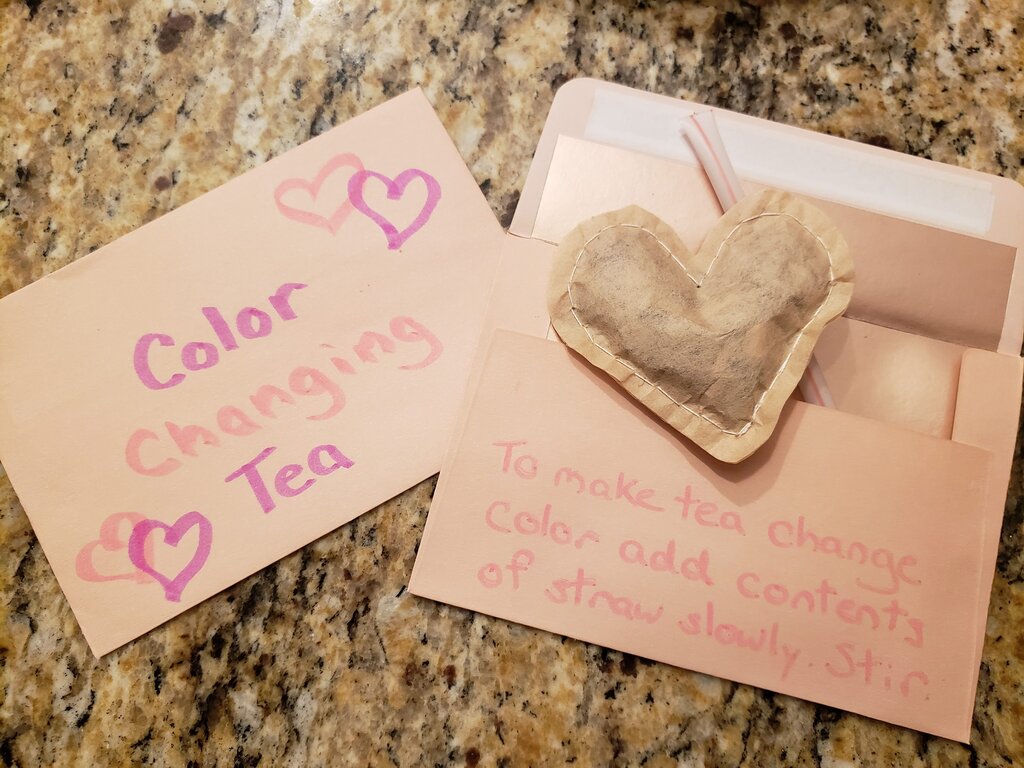 Color
Changing
Tea
To make tea change
Color add contents
of straw slowly. Stir.